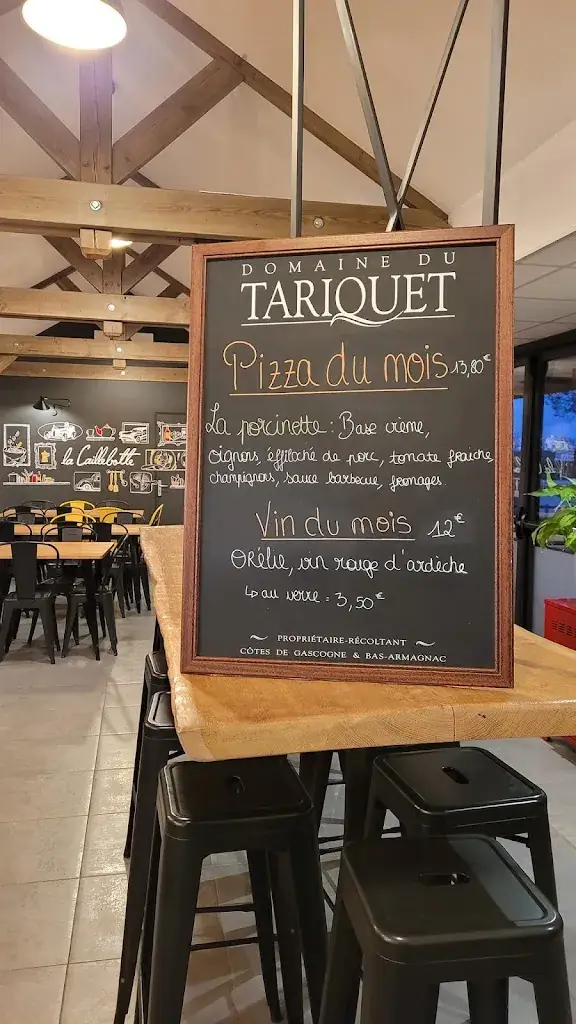 DOMAINE DU
TARIQUET
Pizza du mois 13,80€
La porcinette : Base crème,
oignons, effiloché de porc, tomate fraiche,
champignons, sauce barbecue, fromages.
Vin du mois 12€
Orélie, vin rouge d'ardèche
↳ au verre = 3,50€
PROPRIÉTAIRE-RÉCOLTANT
CÔTES DE GASCOGNE & BAS-ARMAGNAC
la Caillebotte